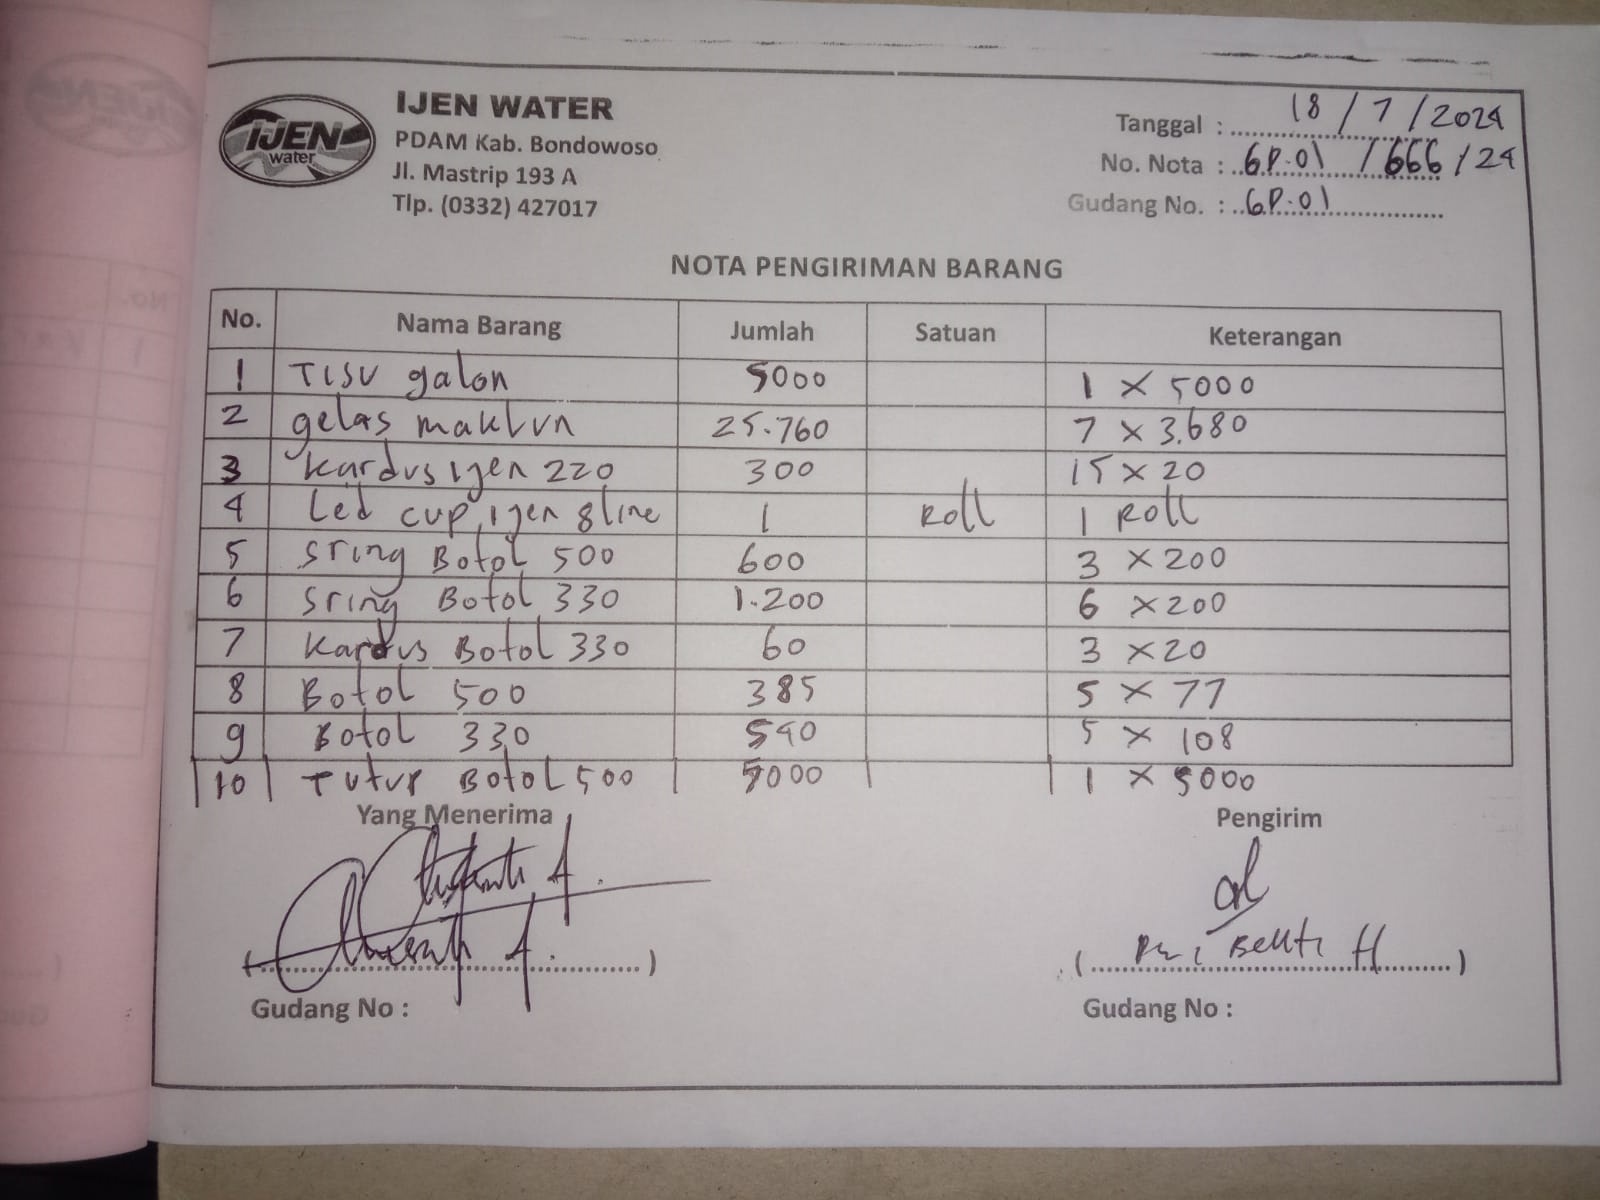 IJEN
water
IJEN WATER
PDAM Kab. Bondowoso
Jl. Mastrip 193 A
Tlp. (0332) 427017
Tanggal : 18 / 7 / 2024
No. Nota : GP.01 / 666 / 24
Gudang No. : GP.01
NOTA PENGIRIMAN BARANG
No. Nama Barang Jumlah Satuan Keterangan
1 TISU galon 5000 1 x 5000
2 gelas maklun 25.760 7 x 3.680
3 Kardus ijen 220 300 15 x 20
4 Led cup ijen 8 line 1 Roll 1 Roll
5 Sring Botol 500 600 3 x 200
6 Sring Botol 330 1.200 6 x 200
7 Kardus Botol 330 60 3 x 20
8 Botol 500 385 5 x 77
9 Botol 330 540 5 x 108
10 Tutup Botol 500 5000 1 x 5000
Yang Menerima Pengirim
H
Gudang No : Gudang No :